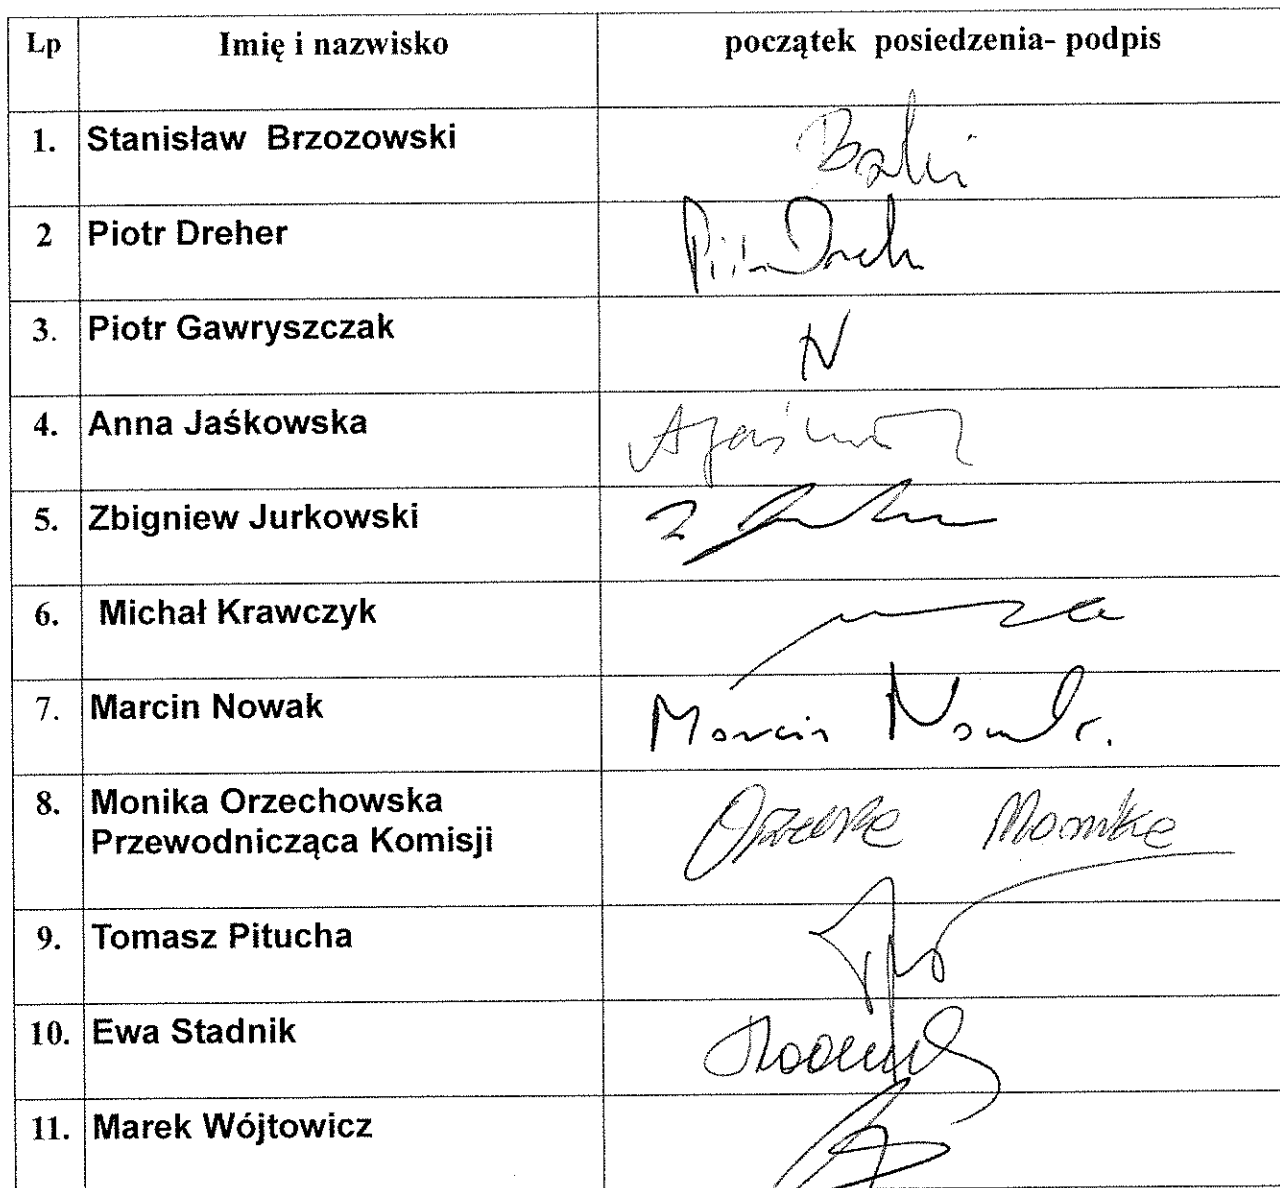 Lp Imię i nazwisko początek posiedzenia- podpis
1. Stanisław Brzozowski
2 Piotr Dreher
3. Piotr Gawryszczak N
4. Anna Jaśkowska
5. Zbigniew Jurkowski
6. Michał Krawczyk
7. Marcin Nowak Marcin Nowak
8. Monika Orzechowska
Przewodnicząca Komisji
9. Tomasz Pitucha
10. Ewa Stadnik
11. Marek Wójtowicz